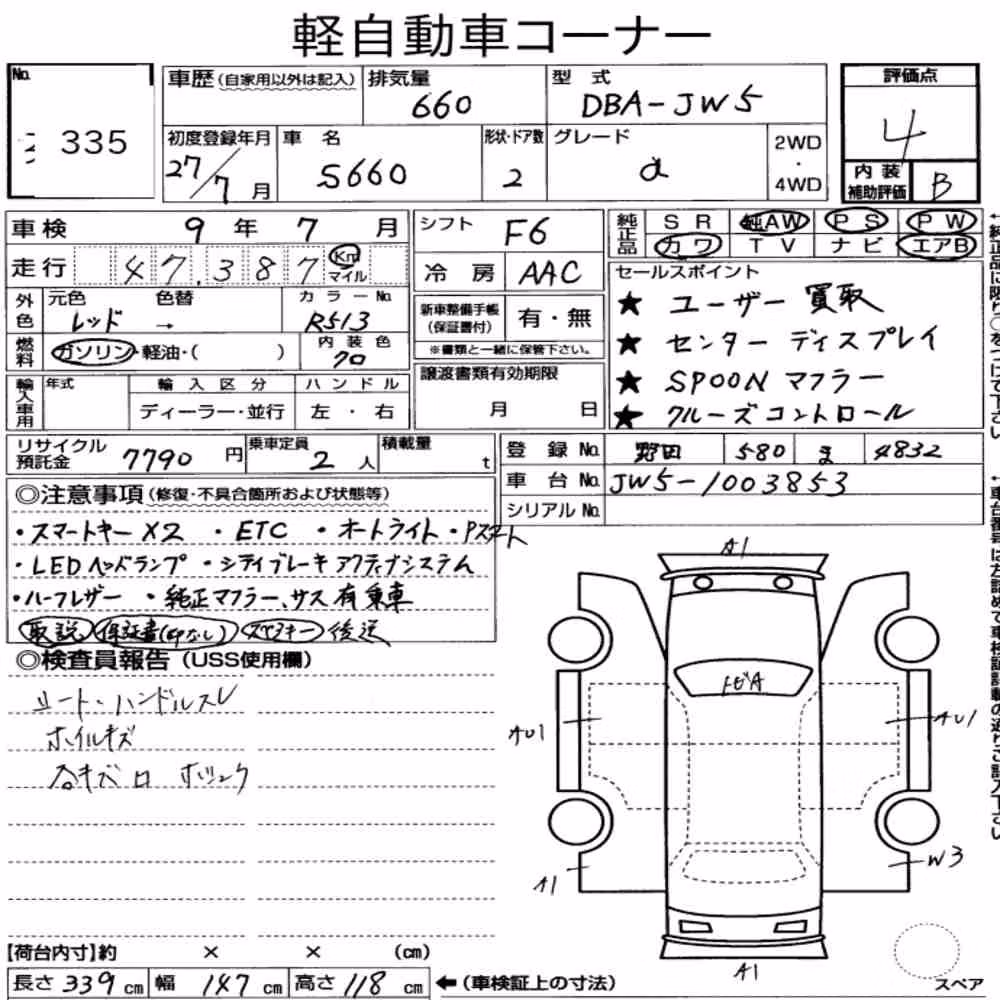 軽自動車コーナー
No. 335
車歴(自家用以外は記入)
排気量 660
型式 DBA-JW5
評価点 4
初度登録年月 27/7月
車名 S660
形状・ドア数 2
グレード α
2WD・4WD
内装補助評価 B
車検 9年7月
シフト F6
純正品 SR 純AW PS PW
カワ TV ナビ エアB
走行 47,387 Km マイル
冷房 AAC
セールスポイント
★ ユーザー買取
★ センターディスプレイ
★ SPOONマフラー
★ クルーズコントロール
外色 元色 レッド → 色替 カラーNo. R513
新車整備手帳(保証書付) 有・無
※書類と一緒に保管下さい。
燃料 ガソリン・軽油・( ) 内装色 クロ
譲渡書類有効期限 月 日
輸入車用 年式 輸入区分 ハンドル
ディーラー・並行 左・右
リサイクル預託金 7790円
乗車定員 2人
積載量 t
登録No. 野田 580 ま 4832
車台No. JW5-1003853
シリアルNo.
◎注意事項(修復・不具合箇所および状態等)
・スマートキーX2 ・ETC ・オートライト ・Pスタート
・LEDヘッドランプ ・シティブレーキアクティブシステム
・ハーフレザー ・純正マフラー、サス有 乗車
取説 保証書(印なし) スペアキー 後送
◎検査員報告(USS使用欄)
シート・ハンドルスレ
ホイルキズ
A1
トビA
AU1
AU1
A1
W3
A1
スペア
【荷台内寸】約 × × (cm)
長さ 339cm 幅 147cm 高さ 118cm
←(車検証上の寸法)